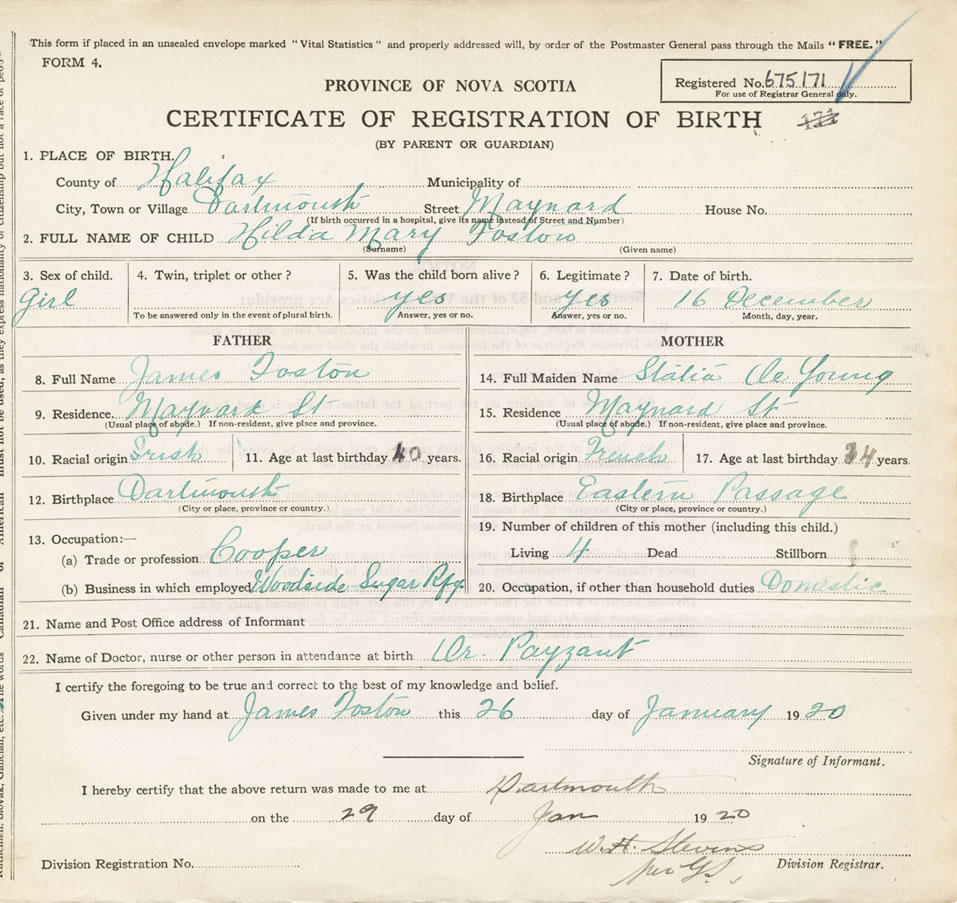 This form if placed in an unsealed envelope marked "Vital Statistics" and properly addressed will, by order of the Postmaster General pass through the Mails "FREE."
FORM 4.
Registered No. 675171
For use of Registrar General only.
PROVINCE OF NOVA SCOTIA
CERTIFICATE OF REGISTRATION OF BIRTH 171
(BY PARENT OR GUARDIAN)
1. PLACE OF BIRTH.
County of Halifax Municipality of
City, Town or Village Dartmouth Street Maynard House No.
(If birth occurred in a hospital, give its name instead of Street and Number)
2. FULL NAME OF CHILD Hilda Mary Foston
(Surname) (Given name)
3. Sex of child. 4. Twin, triplet or other? 5. Was the child born alive? 6. Legitimate? 7. Date of birth.
Girl yes yes 16 December
To be answered only in the event of plural birth. Answer, yes or no. Answer, yes or no. Month, day, year.
FATHER MOTHER
8. Full Name James Foston
14. Full Maiden Name Statia De Young
9. Residence. Maynard St
15. Residence Maynard St
(Usual place of abode.) If non-resident, give place and province.
(Usual place of abode.) If non-resident, give place and province.
10. Racial origin Irish 11. Age at last birthday 40 years.
16. Racial origin French 17. Age at last birthday 34 years.
12. Birthplace Dartmouth
18. Birthplace Eastern Passage
(City or place, province or country.)
(City or place, province or country.)
19. Number of children of this mother (including this child.)
13. Occupation:—
(a) Trade or profession Cooper
Living 4 Dead Stillborn
(b) Business in which employed Woodside Sugar Rfy.
20. Occupation, if other than household duties Domestic
21. Name and Post Office address of Informant
22. Name of Doctor, nurse or other person in attendance at birth Dr. Payzant
I certify the foregoing to be true and correct to the best of my knowledge and belief.
Given under my hand at James Foston this 26 day of January 1920
Signature of Informant.
I hereby certify that the above return was made to me at Dartmouth
on the 29 day of Jan 1920
W. H. Stevens
per
Division Registration No. Division Registrar.